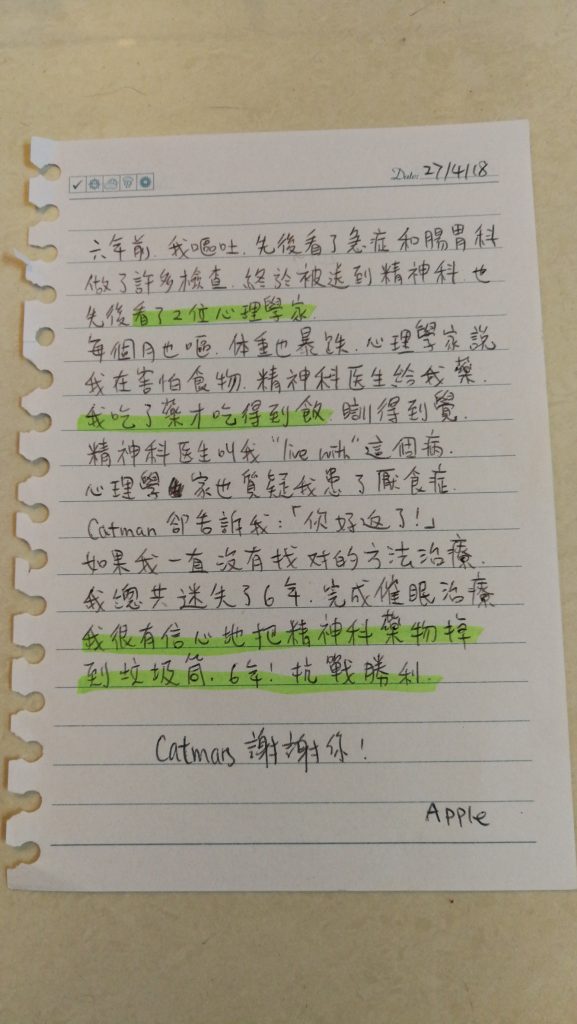 Date: 27/4/18
六年前. 我嘔吐. 先後看了急症和腸胃科
做了許多檢查. 終於被送到精神科. 也
先後看了2位心理學家.
每個月也嘔. 体重也暴跌. 心理學家說
我在害怕食物. 精神科医生給我藥.
我吃了藥才吃得到飯. 瞓得到覺.
精神科医生叫我 "live with" 這個病.
心理學家也質疑我患了厭食症.
Catman 卻告訴我:「你好返了!」
如果我一直沒有找对的方法治療.
我總共迷失了6年. 完成催眠治療
我很有信心地把精神科藥物掉
到垃圾筒. 6年! 抗戰勝利.
Catman 謝謝你!
Apple